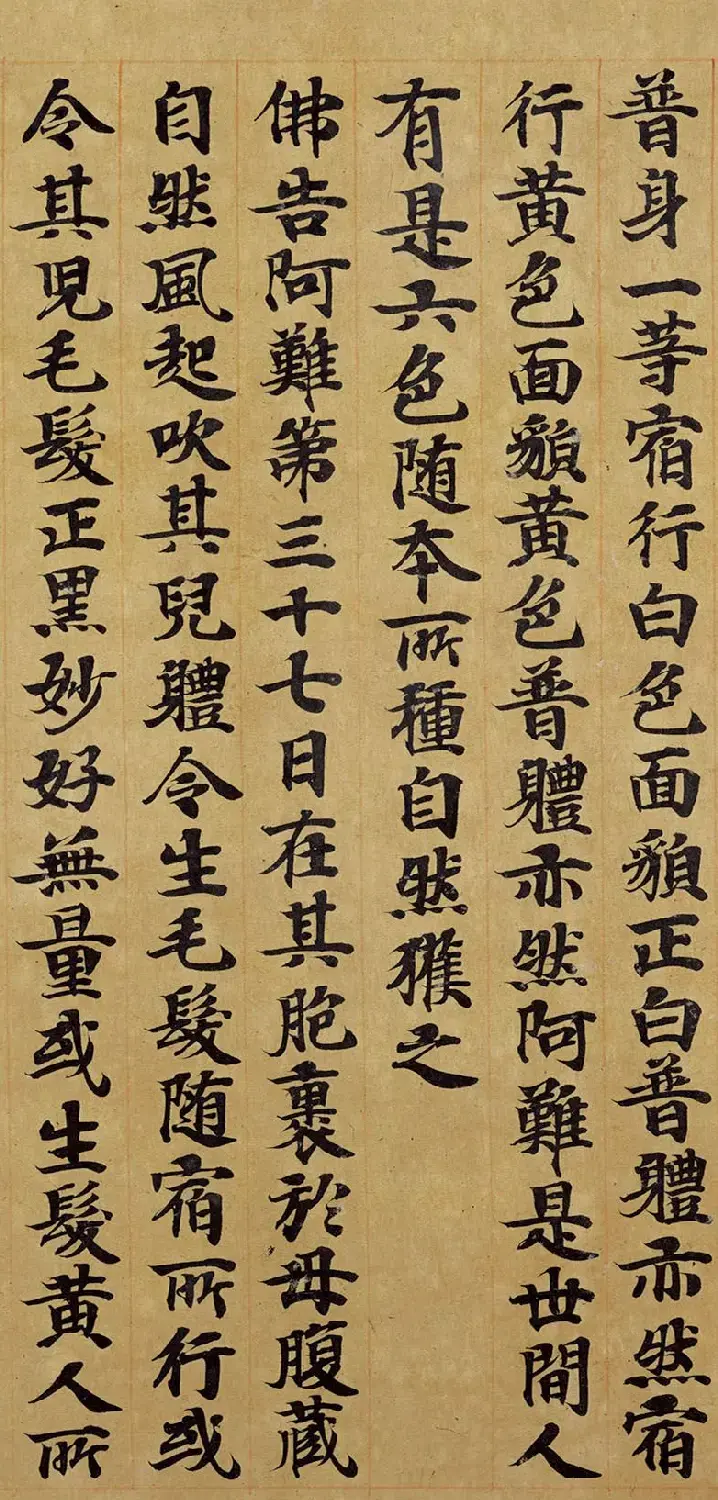 普身一等宿行白色面䫉正白普軆亦然宿
行黄色面䫉黄色普軆亦然阿難是世間人
有是六色随本所種自然獲之
佛告阿難第三十七日在其胞裏於母腹蔵
自然風起吹其兒軆令生毛髮随宿所行或
令其児毛髮正黒妙好無量或生髮黄人所